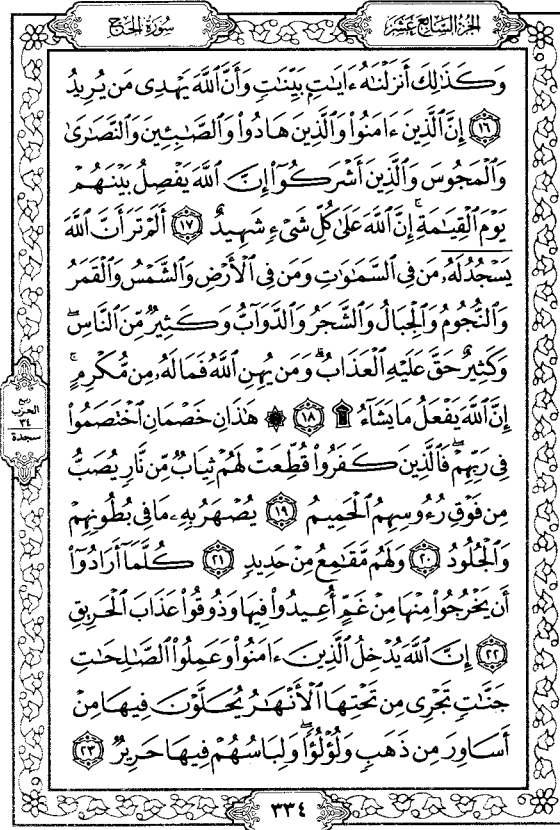 سُورَةُ الحَجّ
الجُزءُ السَّابِعَ عَشَرَ
وَكَذَٰلِكَ أَنزَلْنَٰهُ ءَايَٰتِۭ بَيِّنَٰتٍ وَأَنَّ ٱللَّهَ يَهْدِى مَن يُرِيدُ
﴿١٦﴾ إِنَّ ٱلَّذِينَ ءَامَنُوا۟ وَٱلَّذِينَ هَادُوا۟ وَٱلصَّٰبِـِٔينَ وَٱلنَّصَٰرَىٰ
وَٱلْمَجُوسَ وَٱلَّذِينَ أَشْرَكُوٓا۟ إِنَّ ٱللَّهَ يَفْصِلُ بَيْنَهُمْ
يَوْمَ ٱلْقِيَٰمَةِ ۚ إِنَّ ٱللَّهَ عَلَىٰ كُلِّ شَىْءٍ شَهِيدٌ ﴿١٧﴾ أَلَمْ تَرَ أَنَّ ٱللَّهَ
يَسْجُدُ لَهُۥ مَن فِى ٱلسَّمَٰوَٰتِ وَمَن فِى ٱلْأَرْضِ وَٱلشَّمْسُ وَٱلْقَمَرُ
وَٱلنُّجُومُ وَٱلْجِبَالُ وَٱلشَّجَرُ وَٱلدَّوَآبُّ وَكَثِيرٌ مِّنَ ٱلنَّاسِ ۖ
وَكَثِيرٌ حَقَّ عَلَيْهِ ٱلْعَذَابُ ۗ وَمَن يُهِنِ ٱللَّهُ فَمَا لَهُۥ مِن مُّكْرِمٍ ۚ
إِنَّ ٱللَّهَ يَفْعَلُ مَا يَشَآءُ ۩ ﴿١٨﴾ ۞ هَٰذَانِ خَصْمَانِ ٱخْتَصَمُوا۟
فِى رَبِّهِمْ ۖ فَٱلَّذِينَ كَفَرُوا۟ قُطِّعَتْ لَهُمْ ثِيَابٌ مِّن نَّارٍ يُصَبُّ
مِن فَوْقِ رُءُوسِهِمُ ٱلْحَمِيمُ ﴿١٩﴾ يُصْهَرُ بِهِۦ مَا فِى بُطُونِهِمْ
وَٱلْجُلُودُ ﴿٢٠﴾ وَلَهُم مَّقَٰمِعُ مِنْ حَدِيدٍ ﴿٢١﴾ كُلَّمَآ أَرَادُوٓا۟
أَن يَخْرُجُوا۟ مِنْهَا مِنْ غَمٍّ أُعِيدُوا۟ فِيهَا وَذُوقُوا۟ عَذَابَ ٱلْحَرِيقِ
﴿٢٢﴾ إِنَّ ٱللَّهَ يُدْخِلُ ٱلَّذِينَ ءَامَنُوا۟ وَعَمِلُوا۟ ٱلصَّٰلِحَٰتِ
جَنَّٰتٍ تَجْرِى مِن تَحْتِهَا ٱلْأَنْهَٰرُ يُحَلَّوْنَ فِيهَا مِنْ
أَسَاوِرَ مِن ذَهَبٍ وَلُؤْلُؤًا ۖ وَلِبَاسُهُمْ فِيهَا حَرِيرٌ ﴿٢٣﴾
ربع
الحزب
٣٤
سجدة
٣٣٤